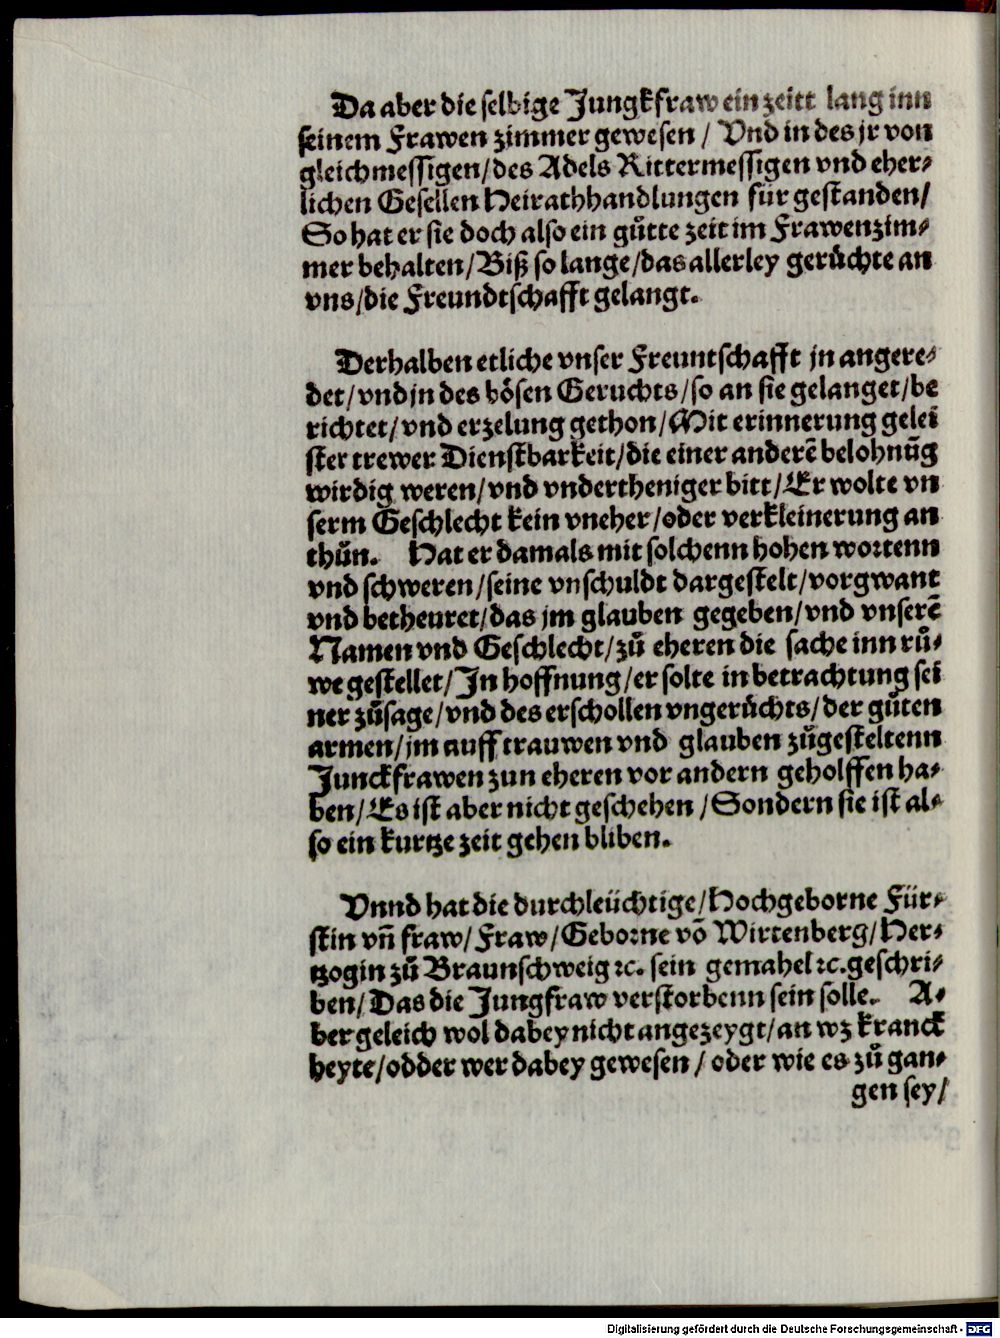 Da aber die selbige Jungkfraw ein zeitt lang inn
seinem Frawen zimmer gewesen / Vnd in des jr von
gleichmessigen/des Adels Rittermessigen vnd eher⸗
lichen Gesellen Heirathhandlungen für gestanden/
So hat er sie doch also ein gůtte zeit im Frawenzim⸗
mer behalten/Biß so lange/das allerley gerüchte an
vns/die Freundtschafft gelangt.
Derhalben etliche vnser Freuntschafft jn angere⸗
det/vnd jn des bösen Geruchts/so an sie gelanget/be
richtet/vnd erzelung gethon/Mit erinnerung gelei
ster trewer Dienstbarkeit/die einer anderẽ belohnũg
wirdig weren/vnd vndertheniger bitt/Er wolte vn
serm Geschlecht kein vneher/oder verkleinerung an
thůn. Hat er damals mit solchenn hohen wortenn
vnd schweren/seine vnschuldt dargestelt/vorgwant
vnd betheuret/das jm glauben gegeben/vnd vnserẽ
Namen vnd Geschlecht/zů eheren die sache inn rů⸗
we gestellet/In hoffnung/er solte in betrachtung sei
ner zůsage/vnd des erschollen vngerüchts/der gůten
armen/jm auff trauwen vnd glauben zůgesteltenn
Junckfrawen zun eheren vor andern geholffen ha⸗
ben/Es ist aber nicht geschehen /Sondern sie ist al⸗
so ein kurtze zeit gehen bliben.
Vnnd hat die durchleüchtige/Hochgeborne Für⸗
stin vñ fraw/Fraw/Geborne võ Wirtenberg/Her⸗
tzogin zů Braunschweig ꝛc. sein gemahel ꝛc.geschri⸗
ben/Das die Jungfraw verstorbenn sein solle. A⸗
ber geleich wol dabey nicht angezeygt/an wz kranck
heyte/odder wer dabey gewesen / oder wie es zů gan⸗
gen sey/
Digitalisierung gefördert durch die Deutsche Forschungsgemeinschaft - DFG